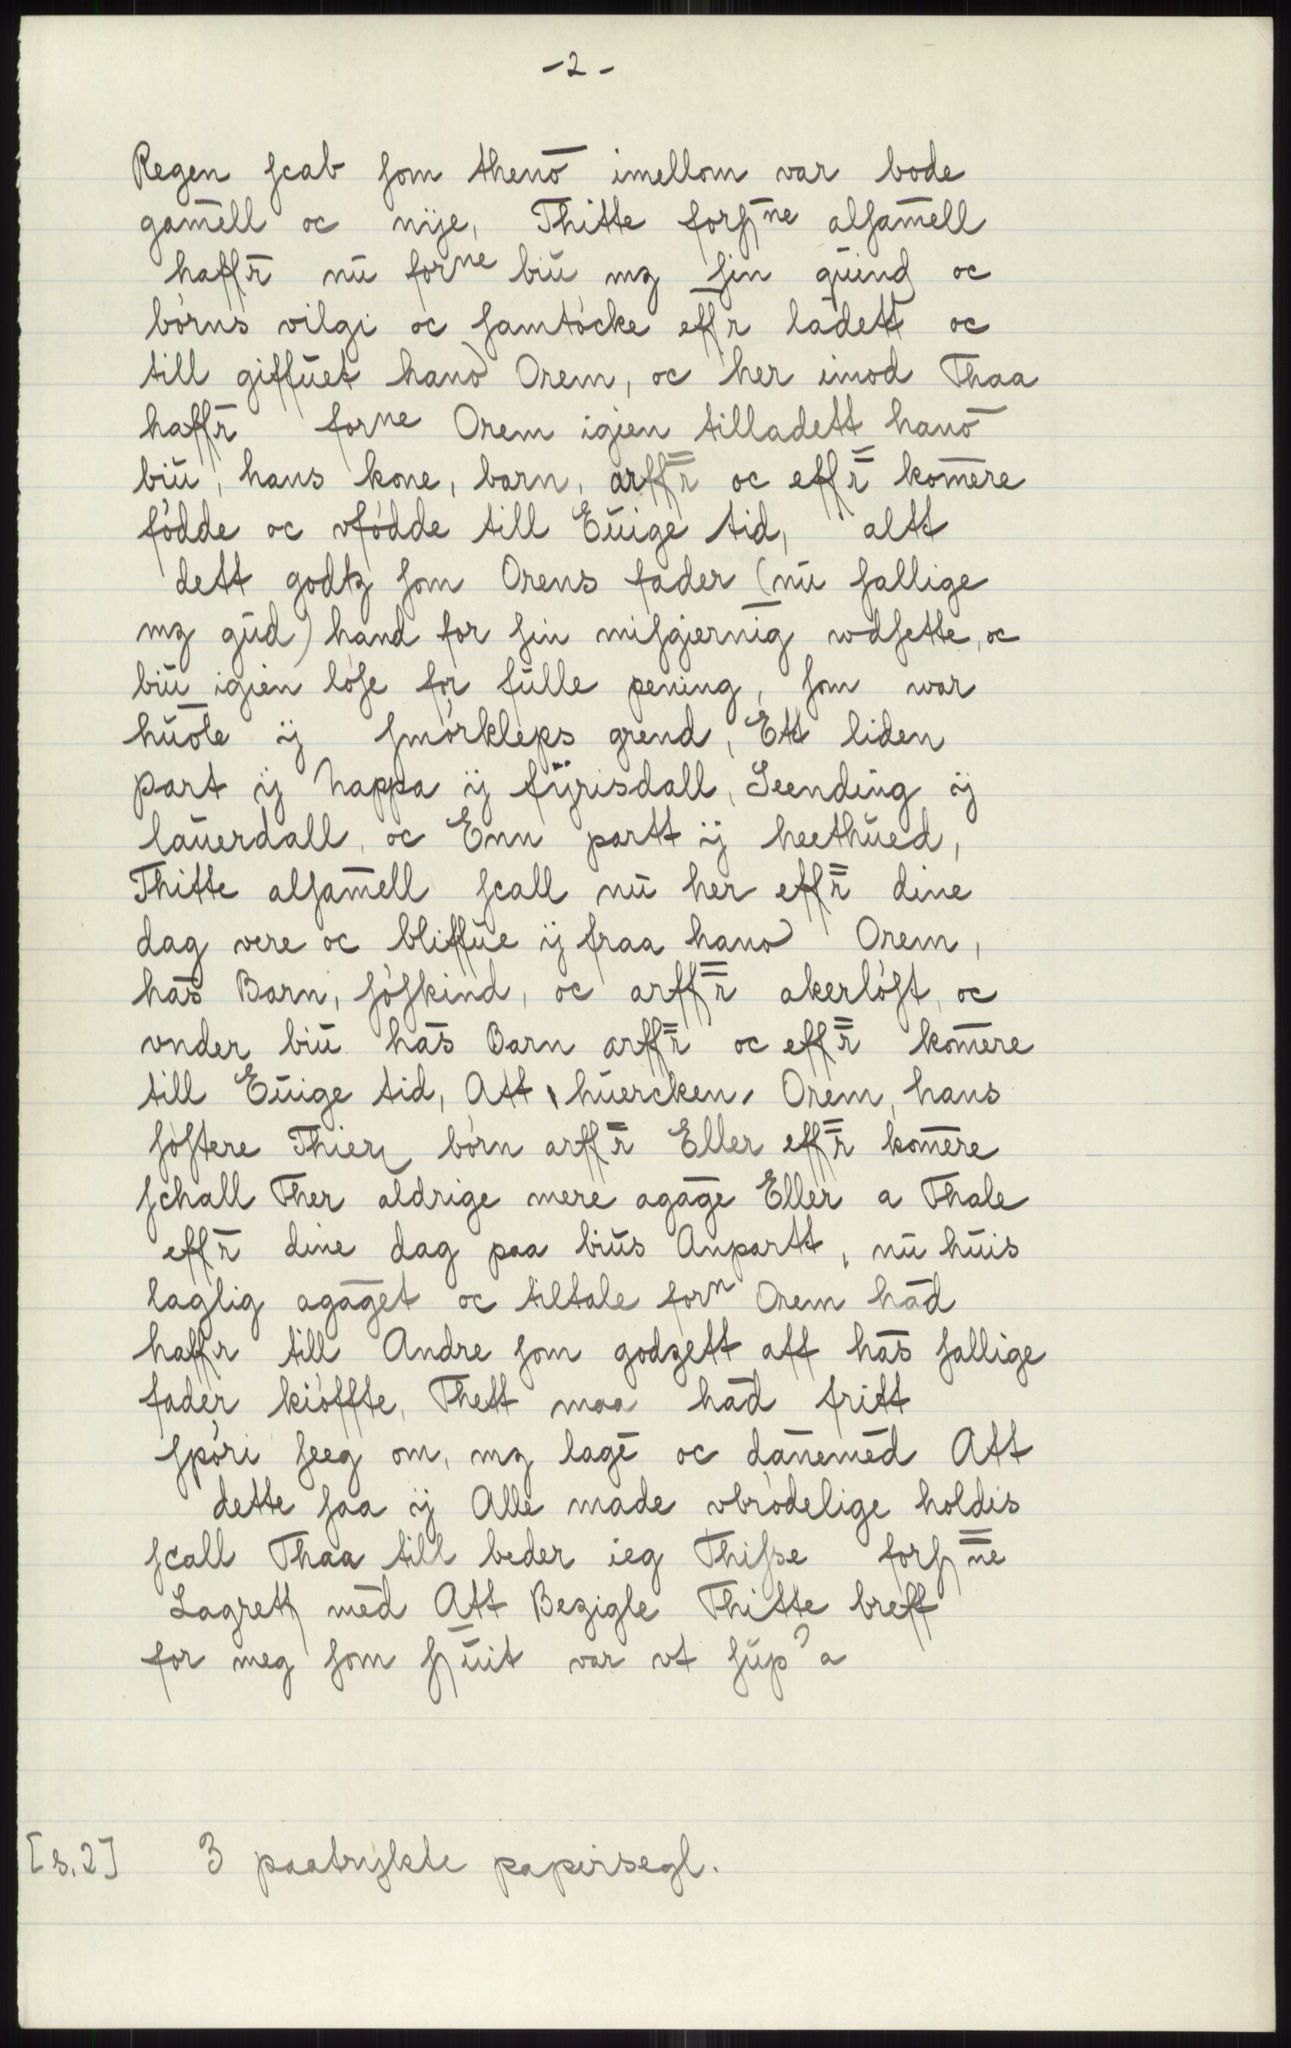 -2-
Regen scab som thenō imellom var bode
gamēll oc nije, Thitte forsⁿᵉ alsamēll
haffr̄ nū forⁿᵉ biū mz sin quind oc
børns vilgi oc samtøcke effr̄ ladett oc
till giffuet hanō Orem, oc her imod Thaa
haffr̄ forⁿᵉ Orem igien tilladett hanō
biū, hans kone, barn, arffr̄ oc effr̄ komēre
fødde oc vfødde till Euige tid, altt
dett godtz som Orens fader (nū sallige
mz gud) hand for sin misgiernīg wdsette, oc
biū igien løse for fulle pening, som war
huōle ij smørkleps grend, Ett liden
part ij Nappa ij fÿrisdall, Seending ij
lauerdall, oc Enn partt ij heethued,
Thitte alsamēll scall nū her effr̄ dine
dag vere oc bliffue ij fraa hanō Orem,
hās Barn, søskind, oc arffr̄ akerløst, oc
vnder biū hās Barn arffr̄ oc effr̄ komēre
till Euige tid, Att huercken Orem, hans
søstere Thierɿ børn arffr̄ Eller effr̄ komēre
schall Ther aldrige mere agāge Eller a Thale
effr̄ dine dag paa bius Anpartt, nu huis
laglig agāget oc tiltale forⁿ Orem hād
haffr till Andre som godzett att hās sallige
fader kiøffte, Thett maa hād fritt
spøri seeg om, mz lagē oc dānemēd Att
dette saa ij Alle made vbrødelige holdis
scall Thaa till beder ieg Thisse forsⁿᵉ
Lagrett mēd Att Bezigle Thitte breff
for meg som sɿuit var vt supʾa
[s. 2] 3 paatrykte papirsegl.